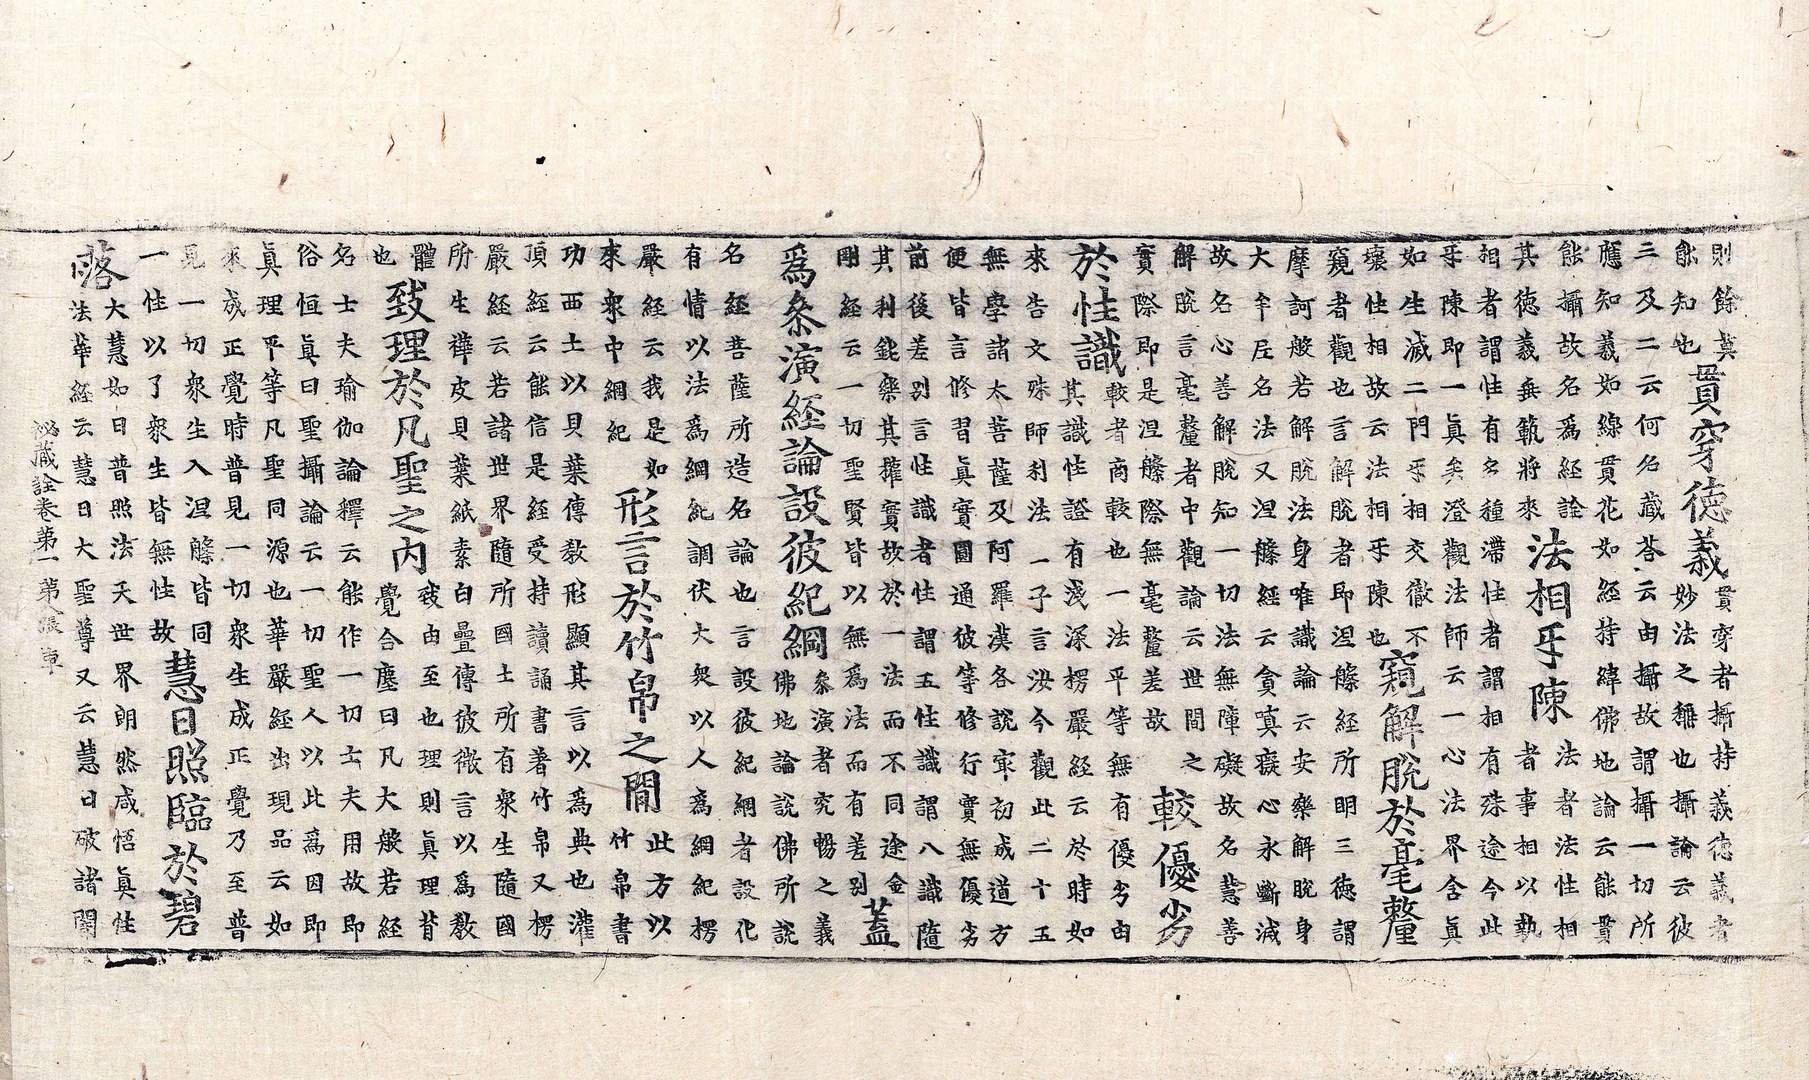 則餘莫
能知也
貫穿德義
貫穿者攝持義德義者
妙法之稱也攝論云彼
三及二云何名藏荅云由攝故謂攝一切所
應知義如線貫花如經持緯佛地論云能貫
能攝故名爲經詮
其德義無執將來
法相㸦陳
法者法性相
者事相以執
相者謂性有多種滯性者謂相有殊途今此
㸦陳即一眞矣澄觀法師云一心法界含眞
如生滅二門㸦相交徹不
壞性相故云法相㸦陳也
窺解脫於毫釐
窺者觀也言解脫者即涅槃經所明三德謂
摩訶般若解脫法身唯識論云安樂解脫身
大牟尼名法又涅槃經云貪嗔癡心永斷滅
故名心善解脫知一切法無障礙故名慧善
解脫言毫釐者中觀論云世間之
實際即是涅槃際無毫釐差故
較優劣
於性識
較者商較也一法平等無有優劣由
其識性證有淺深楞嚴經云於時如
來告文殊師利法一子言汝今觀此二十五
無學諸大菩薩及阿羅漢各說冣初成道方
便皆言修習眞實圓通彼等修行實無優劣
前後差別言性識者性謂五性識謂八識隨
其利鈍樂其權實故於一法而不同途金
剛經云一切聖賢皆以無爲法而有差別
蓋
爲叅演經論設彼紀綱
叅演者究暢之義
佛地論說佛所說
名經菩薩所造名論也言設彼紀綱者設化
有情以法爲綱紀調伏大衆以人爲綱紀楞
嚴經云我是如
來衆中綱紀
形言於竹帛之間
此方以
竹帛書
功西土以貝葉傳教形顯其言以爲典也灌
頂經云能信是經受持讀誦書著竹帛又楞
嚴經云若諸世界隨所國土所有衆生隨國
所生樺皮貝葉紙素白疊傳彼微言以爲教
體
也
致理於凡聖之內
致由至也理則眞理背
覺合塵曰凡大般若經
名士夫瑜伽論釋云能作一切士夫用故即
俗恒眞曰聖攝論云一切聖人以此爲因即
眞理平等凡聖同源也華嚴經出現品云如
來成正覺時普見一切衆生成正覺乃至普
見一切衆生入涅槃皆同
一性以了衆生皆無性故
慧日照臨於碧
落
大慧如日普照法天世界朗然咸悟眞性
法華經云慧日大聖尊又云慧日破諸闇
祕藏詮卷第一 第八張 章